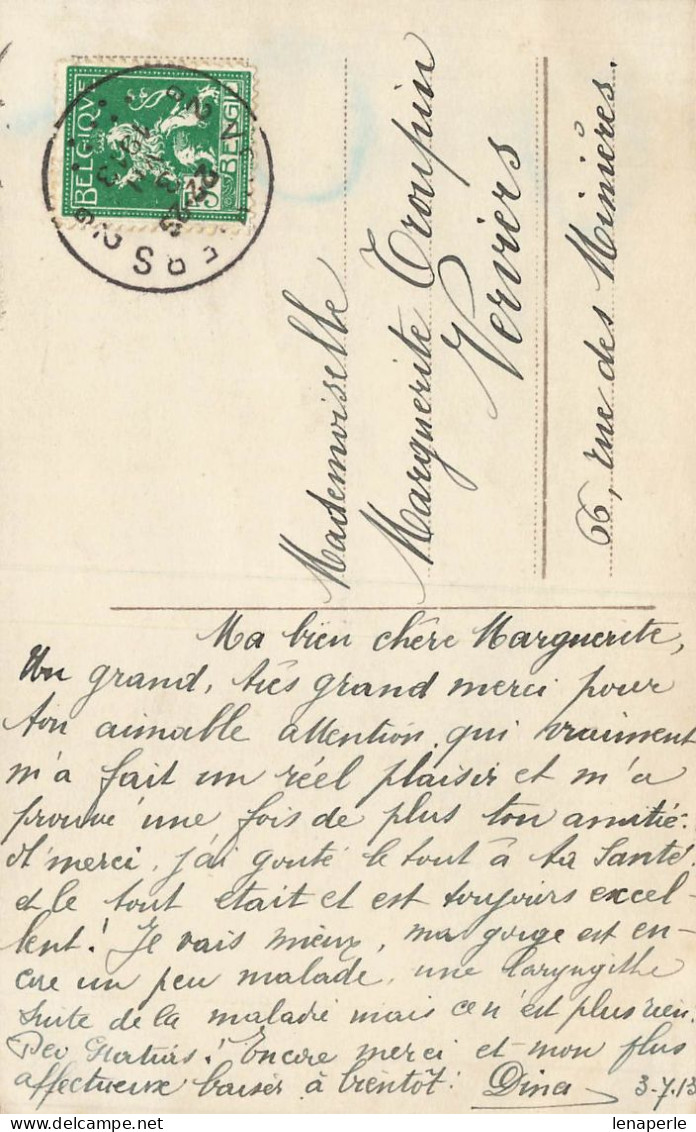 BELGIQUE
BELGIË
Mademoiselle
Marguerite Troupin
Verviers
66, rue des Minières.
Ma bien chère Marguerite,
Un grand, très grand merci pour
ton aimable attention, qui vraiment
m'a fait un réel plaisir et m'a
prouvé une fois de plus ton amitié.
merci, j'ai gouté le tout à ta santé,
et le tout était et est toujours excel-
lent! Je vais mieux, ma gorge est en-
core un peu malade, une laryngithe
suite de la maladie mais ce n'est plus rien.
Deo Gratias! Encore merci et mon plus
affectueux baiser à bientôt! Dina 3-7.13
lenaperle